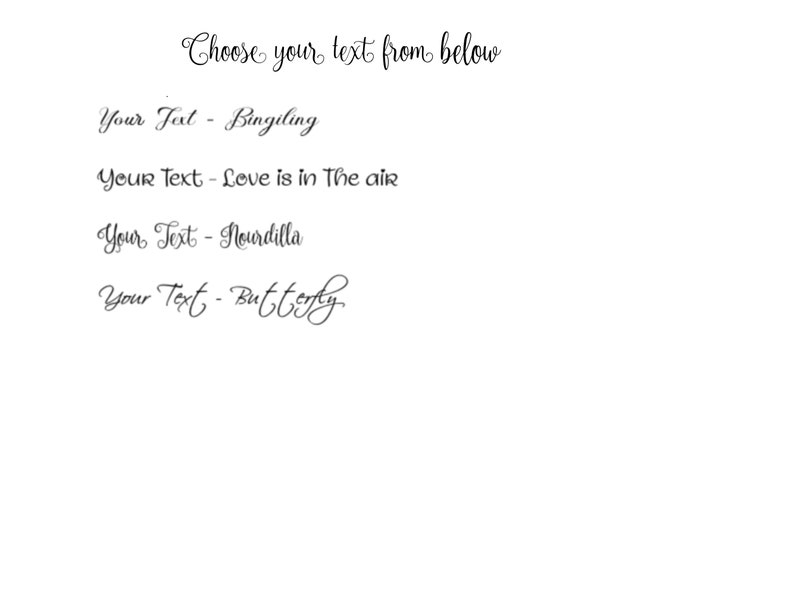 Choose your text from below
Your Text - Bingiling
Your Text - Love is in The air
Your Text - Nourdilla
Your Text - Butterfly